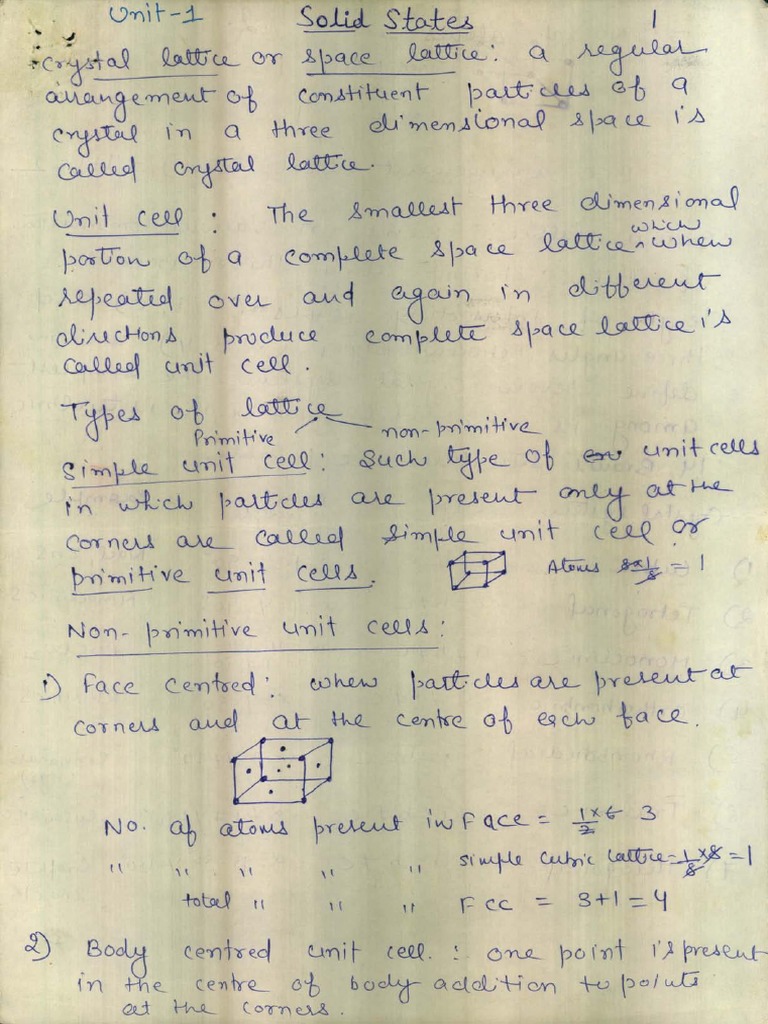 Unit-1 Solid States 1
crystal lattice or space lattice: a regular
arrangement of constituent particles of a
crystal in a three dimensional space is
called crystal lattice.
Unit cell : The smallest three dimensional
which
portion of a complete space lattice ^ when
repeated over and again in different
directions produce complete space lattice is
called unit cell.
Types of lattice
Primitive non-primitive
Simple unit cell: Such type of unit cells
in which particles are present only at the
corners are called simple unit cell or
primitive unit cells. Atoms 8×1/8 = 1
Non-primitive unit cells:
1) Face centred: when particles are present at
corners and at the centre of each face.
No. of atoms present in Face = 1/2 × 6 3
" " " " simple cubic lattice = 1/8 × 8 = 1
total " " " Fcc = 3+1=4
2) Body centred unit cell. : one point is present
in the centre of body addition to points
at the corners.